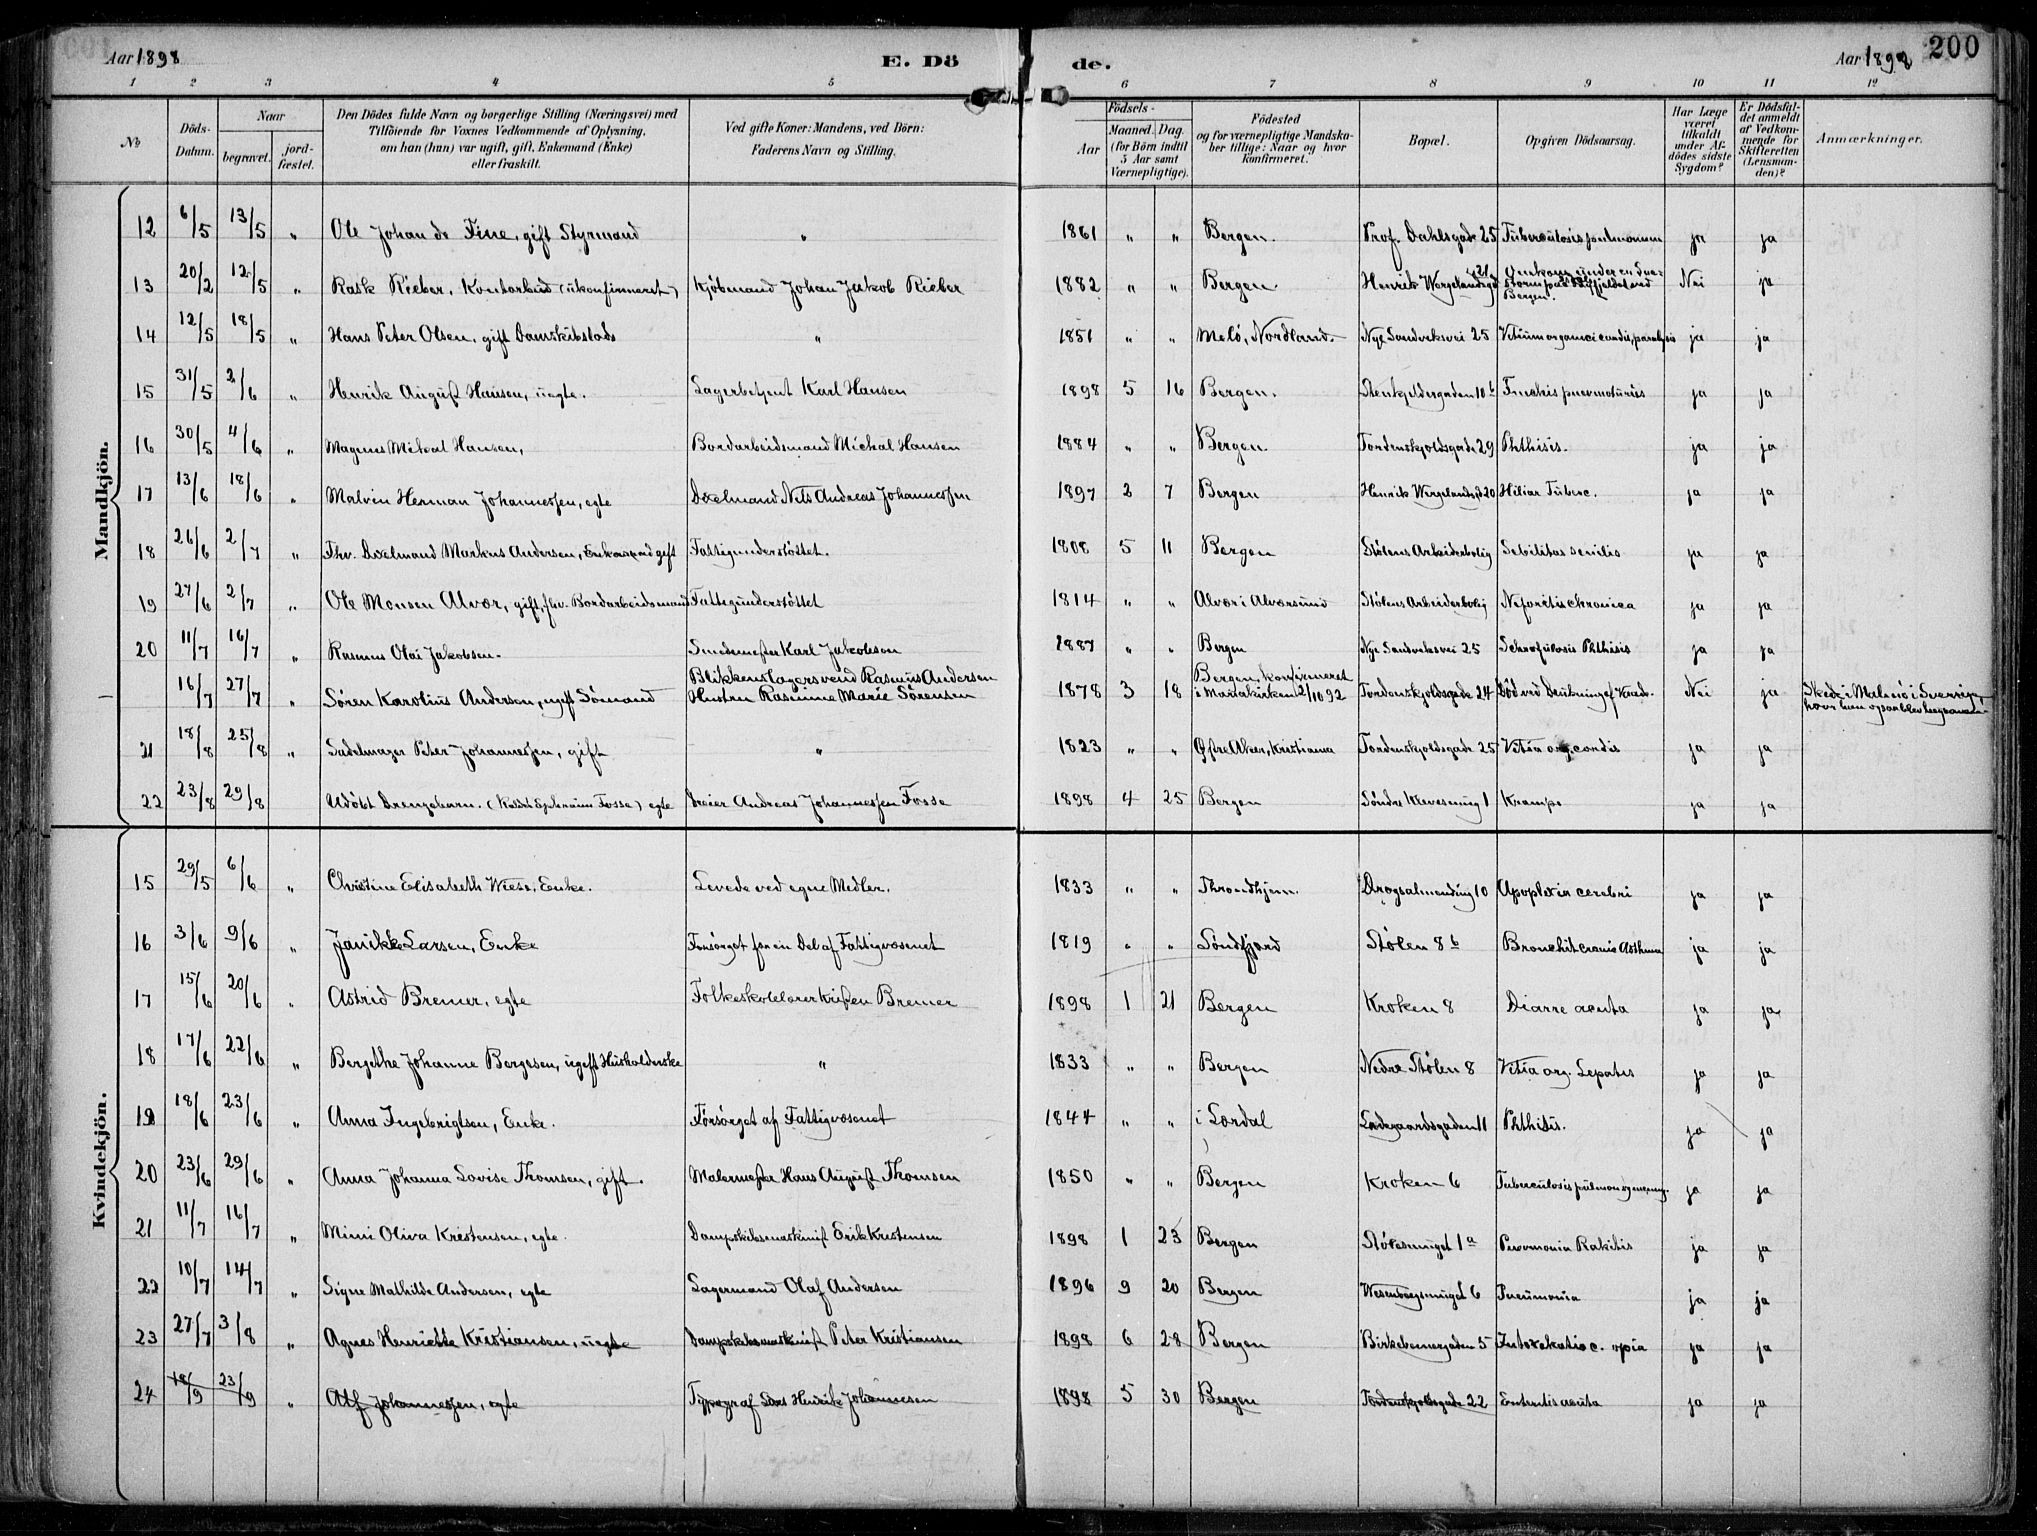 Aar 1898
E. Dö
de.
Aar 1898
200
1 2 3 4 5 6 7 8 9 10 11 12
No
Döds-Datum.
Naar
begravet.
jord-fæstet.
Den Dödes fulde Navn og borgerlige Stilling (Næringsvei) med
Tilföiende for Voxnes Vedkommende af Oplysning,
om han (hun) var ugift, gift, Enkemand (Enke)
eller fraskilt.
Ved gifte Koner: Mandens, ved Börn:
Faderens Navn og Stilling.
Födsels-
Aar
Maaned. Dag.
(for Börn indtil
5 Aar samt
Værnepligtige).
Födested
og for værnepligtige Mandska-
ber tillige: Naar og hvor
Konfirmeret.
Bopæl.
Opgiven Dödsaarsag.
Har Læge
været
tilkaldt
under Af-
dödes sidste
Sygdom?
Er Dödsfal-
det anmeldt
af Vedkom-
mende for
Skifteretten
(Lensman-
den)?
Anmærkninger.
Mandkjön.
12 6/5 13/5 " Ole Johan de Fine, gift Styrmand " 1861 " " Bergen. Prof. Dahlsgade 25 Tuberculosis pulmonum ja ja
13 20/2 12/5 " Rask Rieber, Kontorbud (ukonfirmeret) Kjöbmand Johan Jakob Rieber 1882 " " Bergen. Henrik Wergelandsgd 21 Omkom under en Sne-
storm paa Byfjeldet ved
Bergen. Nei ja
14 12/5 18/5 " Hans Peter Olsen, gift Damskibslods " 1851 " " Melö, Nordland. Nye Sandviksvei 25 Vitium organici cordis, paralysis ja ja
15 31/5 2/6 " Henrik August Hansen, uegte. Lagerbetjent Karl Hansen 1898 5 16 Bergen. Stenkjeldergaden 10b ja ja
16 30/5 4/6 " Magnus Mikal Hansen, Bordarbeidsmand Michal Hansen 1884 " " Bergen. Tordenskjoldsgade 29 Phthisis. ja ja
17 13/6 18/6 " Malvin Herman Johannessen, egte Dxelmand Nils Andreas Johannessen 1897 2 7 Bergen Henrik Wergelandsgd 20 Miliar Tuberc. ja ja
18 26/6 2/7 " Fhv. Dxelmand Markus Andersen, Enkemand gift Fattigunderstøttet. 1808 5 11 Bergen Stølens Arbeiderbolig Debilitas senilis ja ja
19 27/6 2/7 " Ole Monsen Alvær, gift, fhv. Bordarbeidsmand Fattigunderstøttet 1814 " " Alvær i Alværsund Stølens Arbeiderbolig Nefritis chronica ja ja
20 11/7 16/7 " Rasmus Olai Jakobsen. Smedemester Karl Jakobsen 1887 " " Bergen Nye Sandviksvei 25 Schrofulosis Phthisis ja ja
16/7 27/7 " Søren Karolius Andersen, ugift Sömand Blikkenslagersvend Rasmus Andersen
Hustru Rasmine Marie Sørensen 1878 3 18 Bergen, konfirmeret
i Mariakirken 2/10 92 Tordenskjoldsgade 24 Död ved Drukning af Vaade. Nei ja Skede i Malmö i Sverige,
hvor han ogsaa blev begravet.
21 18/8 25/8 " Sadelmager Peter Johannessen, gift " 1823 " " Østre Aker, Kristiania Tordenskjoldsgade 25 Vitia org. cordis ja ja
22 23/8 29/8 Udöbt Drengebarn. (Kaldet Ephraim Fosse) egte Dreier Andreas Johannessen Fosse 1898 4 25 Bergen Søndre Klevesmug 1 Krampe ja ja
Kvindekjön.
15 29/5 6/6 " Christine Elisabeth Wiese, Enke. Levede ved egne Midler. 1833 " " Throndhjem. Dragsalmending 10 Apoplexia cerebri ja ja
16 3/6 9/6 " Janikke Larsen, Enke Forsørget for en Del af Fattigvæsenet 1819 " " Søndfjord Stølen 8b Bronchit cronic Asthma ja ja
17 15/6 20/6 " Astrid Bremer, egte Folkeskolelærer Kristen Bremer 1898 1 21 Bergen Kroken 8 Diarre acuta ja ja
18 17/6 22/6 " Bergithe Johanne Bergesen, ugift Husholderske " 1833 " " Bergen Nedre Stølen 8 Vitia org. Lepatis ja ja
19 18/6 23/6 " Anna Ingebrigtsen, Enke. Forsørget af Fattigvæsenet 1844 " " i Lærdal Ladegaardsgaden 11 Phthisis. ja ja
20 23/6 29/6 " Anna Johanna Lovise Thomsen, gift. Malermester Hans August Thomsen 1850 " " Bergen Kroken 6 Tuberculosis pulmon ja ja
21 11/7 16/7 " Mimi Oliva Kristensen, egte. Dampskibsmaskinist Erik Kristensen 1898 1 23 Bergen Stølesmuget 1a Pneomonia Rakitis ja ja
22 10/7 14/7 " Signe Mathilde Andersen, egte Lagermand Olaf Andersen 1896 9 20 Bergen 6 Pneumonia ja ja
23 27/7 3/8 " Agnes Henriette Kristiansen, uegte Dampskibsmaskinist Peter Kristiansen 1898 6 28 Bergen Birkebeinergaden 5 Intoxikatio c. opia ja ja
24 18/9 23/9 " Alf Johannessen, egte Typograf Lars Henrik Johannesen 1898 5 30 Bergen Tordenskjoldsgade 22 Enteritis acuta ja ja